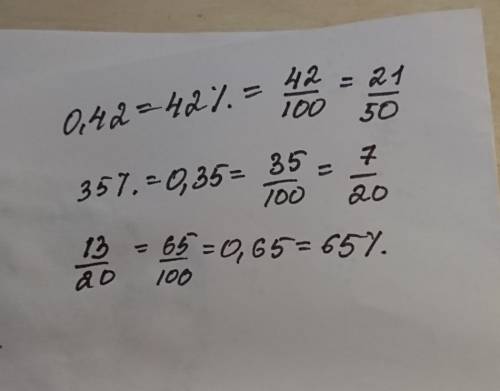 0,42 = 42%. = 42/100 = 21/50
35%. = 0,35 = 35/100 = 7/20
13/20 = 65/100 = 0,65 = 65%.